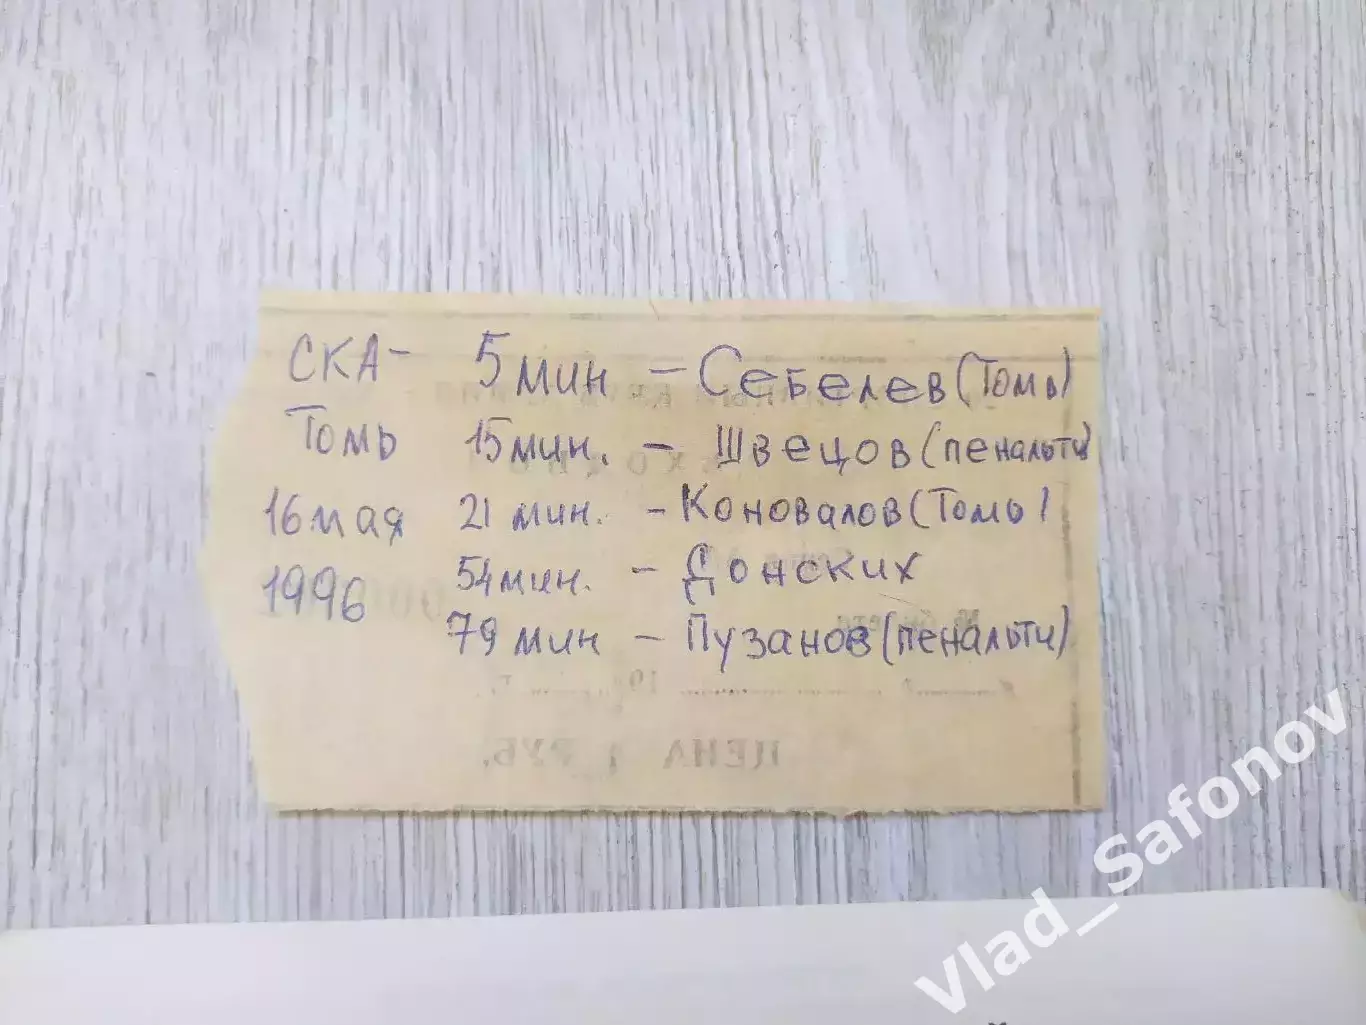 СКА- 5 мин - Себелев (Томь)
Томь 15 мин. - Швецов (пенальти)
16 мая 21 мин. - Коновалов (Томь)
1996 54 мин. - Донских
79 мин - Пузанов (пенальти)
ЦЕНА 1 РУБ.
Vlad_Safonov